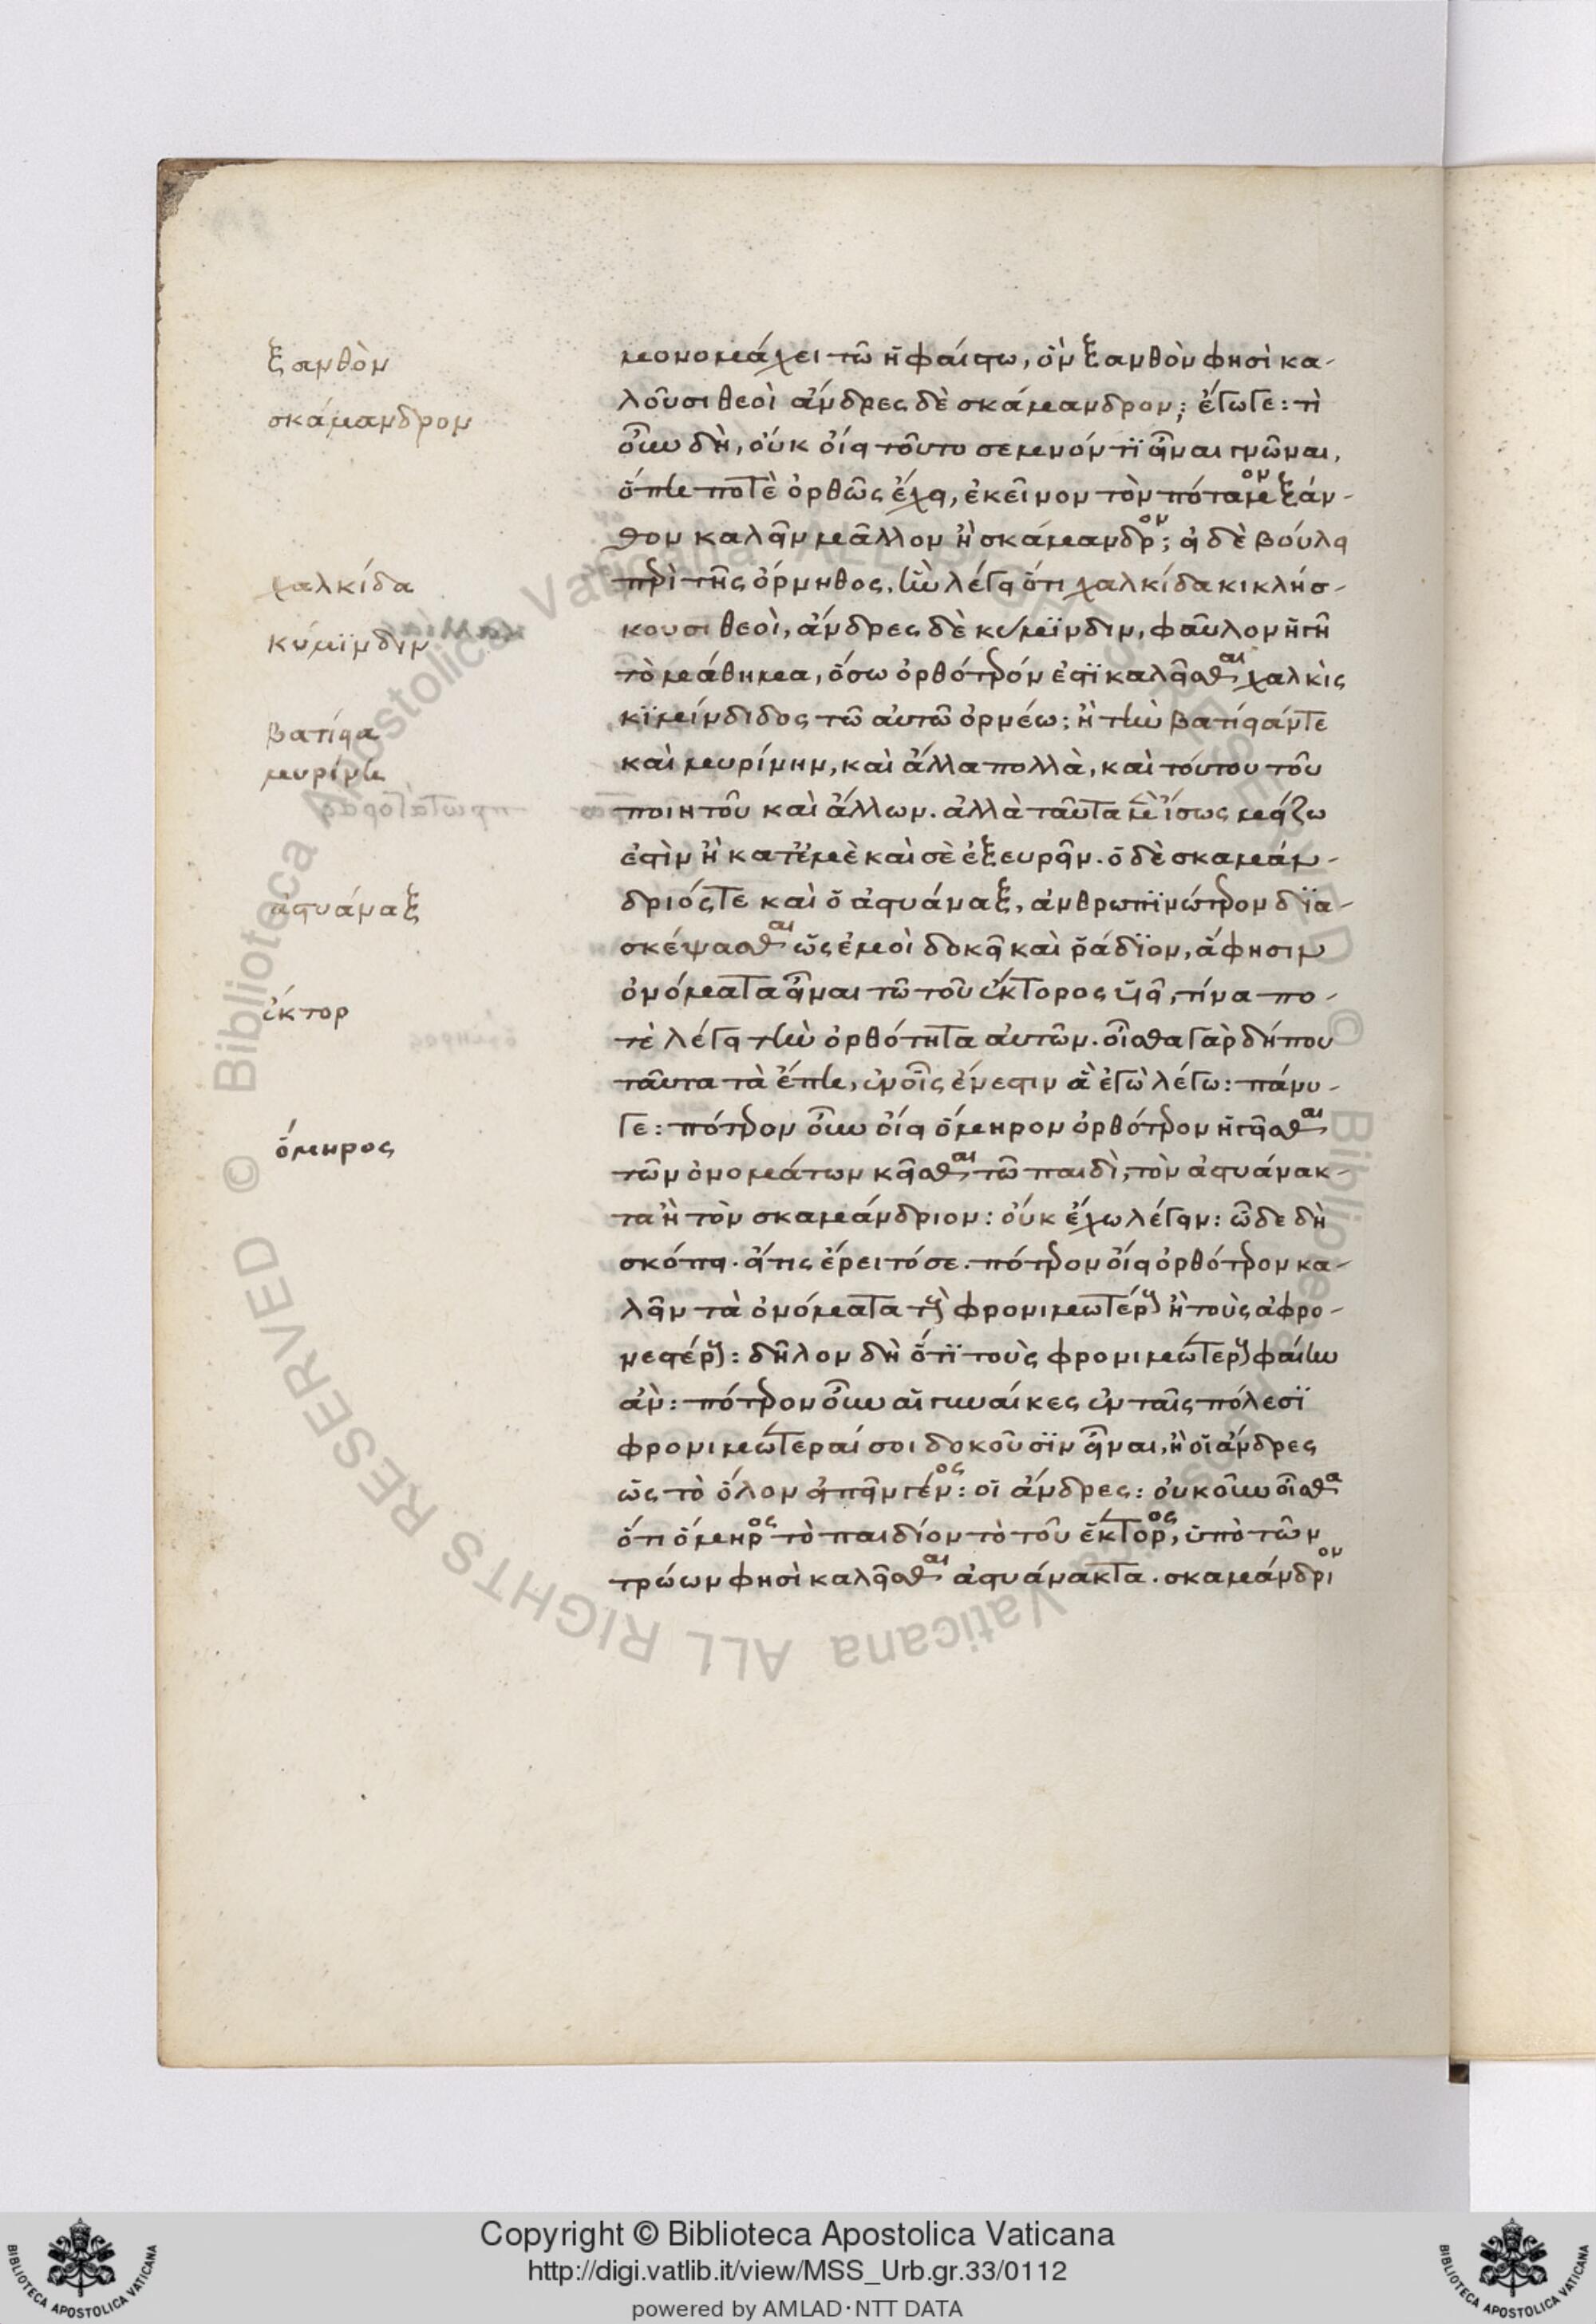 ξανθὸν
σκάμανδρον
χαλκίδα
κύμϊνδιν
βατίεια
μυρίνη
ἀστυάναξ
ἕκτορ
ὅμηρος
μονομάχει τῶ ἡφαίστω, ὃν ξανθὸν φησὶ κα-
λοῦσι θεοὶ ἄνδρες δὲ σκάμανδρον; ἔγωγε: τὶ
οὖν δὴ, οὐκ οἴει τοῦτο σεμνόν τϊ εἶναι γνῶναι,
ὅπη ποτὲ ὀρθῶς ἔχει, ἐκεῖνον τὸν πόταμον ξάν-
θον καλεῖν μᾶλλον ἢ σκάμανδρον; εἰ δὲ βούλει
περὶ τῆς ὄρνιθος, ἣν λέγει ὅτι χαλκίδα κικλήσ-
κουσι θεοὶ, ἄνδρες δὲ κύμϊνδιν, φαῦλον ἡγῆ
τὸ μάθημα, ὅσω ὀρθότερόν ἐστϊ καλεῖσθαι χαλκὶς
κϊμίνδιδος τῶ αὐτῶ ὀρνέω; ἢ τὴν βατίειάντε
καὶ μυρίνην, καὶ ἄλλα πολλὰ, καὶ τούτου τοῦ
ποιητοῦ καὶ ἄλλων. ἀλλὰ ταῦτα μὲν ἴσως μείζω
ἐστὶν ἢ κατ' ἐμὲ καὶ σὲ ἐξευρεῖν. ὁ δὲ σκαμάν-
δριόςτε καὶ ὁ ἀστυάναξ, ἀνθρωπϊνώτερον δϊα-
σκέψασθαι ὥς ἐμοὶ δοκεῖ καὶ ῥάδϊον, ἅ φησιν
ὀνόματα εἶναι τῶ τοῦ ἕκτορος ὑεῖ, τίνα πο-
τὲ λέγει τὴν ὀρθότητα αὐτῶν. οἶσθα γὰρ δήπου
ταῦτα τὰ ἔπη, ἐν οἷς ἔνεστιν ἃ ἐγὼ λέγω: πάνυ-
γε: πότερον οὖν οἴει ὅμηρον ὀρθότερον ἡγεῖσθαι
τῶν ὀνομάτων κεῖσθαι τῶ παιδὶ, τὸν ἀστυάνακ-
τα ἢ τὸν σκαμάνδριον: οὐκ ἔχω λέγειν: ὧδε δὴ
σκόπει. εἴ τις ἔρειτό σε. πότερον οἴει ὀρθότερον κα-
λεῖν τὰ ὀνόματα τοὺς φρονιμωτέρους ἢ τοὺς ἀφρο-
νεστέρους: δῆλον δὴ ὅτϊ τοὺς φρονιμώτερους φαίην
ἂν: πότερον οὖν αἱ γυναίκες ἐν ταῖς πόλεσϊ
φρονιμώτεραί σοι δοκοῦσϊν εἶναι, ἢ οἱ ἄνδρες
ὥς τὸ ὅλον εἰπεῖν γένος: οἱ ἄνδρες: οὐκοῦν οἶσθα
ὅτι ὅμηρος τὸ παιδίον τὸ τοῦ ἕκτορος, ὑπὸ τῶν
τρώων φησὶ καλεῖσθαι ἀστυάνακτα. σκαμάνδριον
Copyright © Biblioteca Apostolica Vaticana
http://digi.vatlib.it/view/MSS_Urb.gr.33/0112
powered by AMLAD·NTT DATA